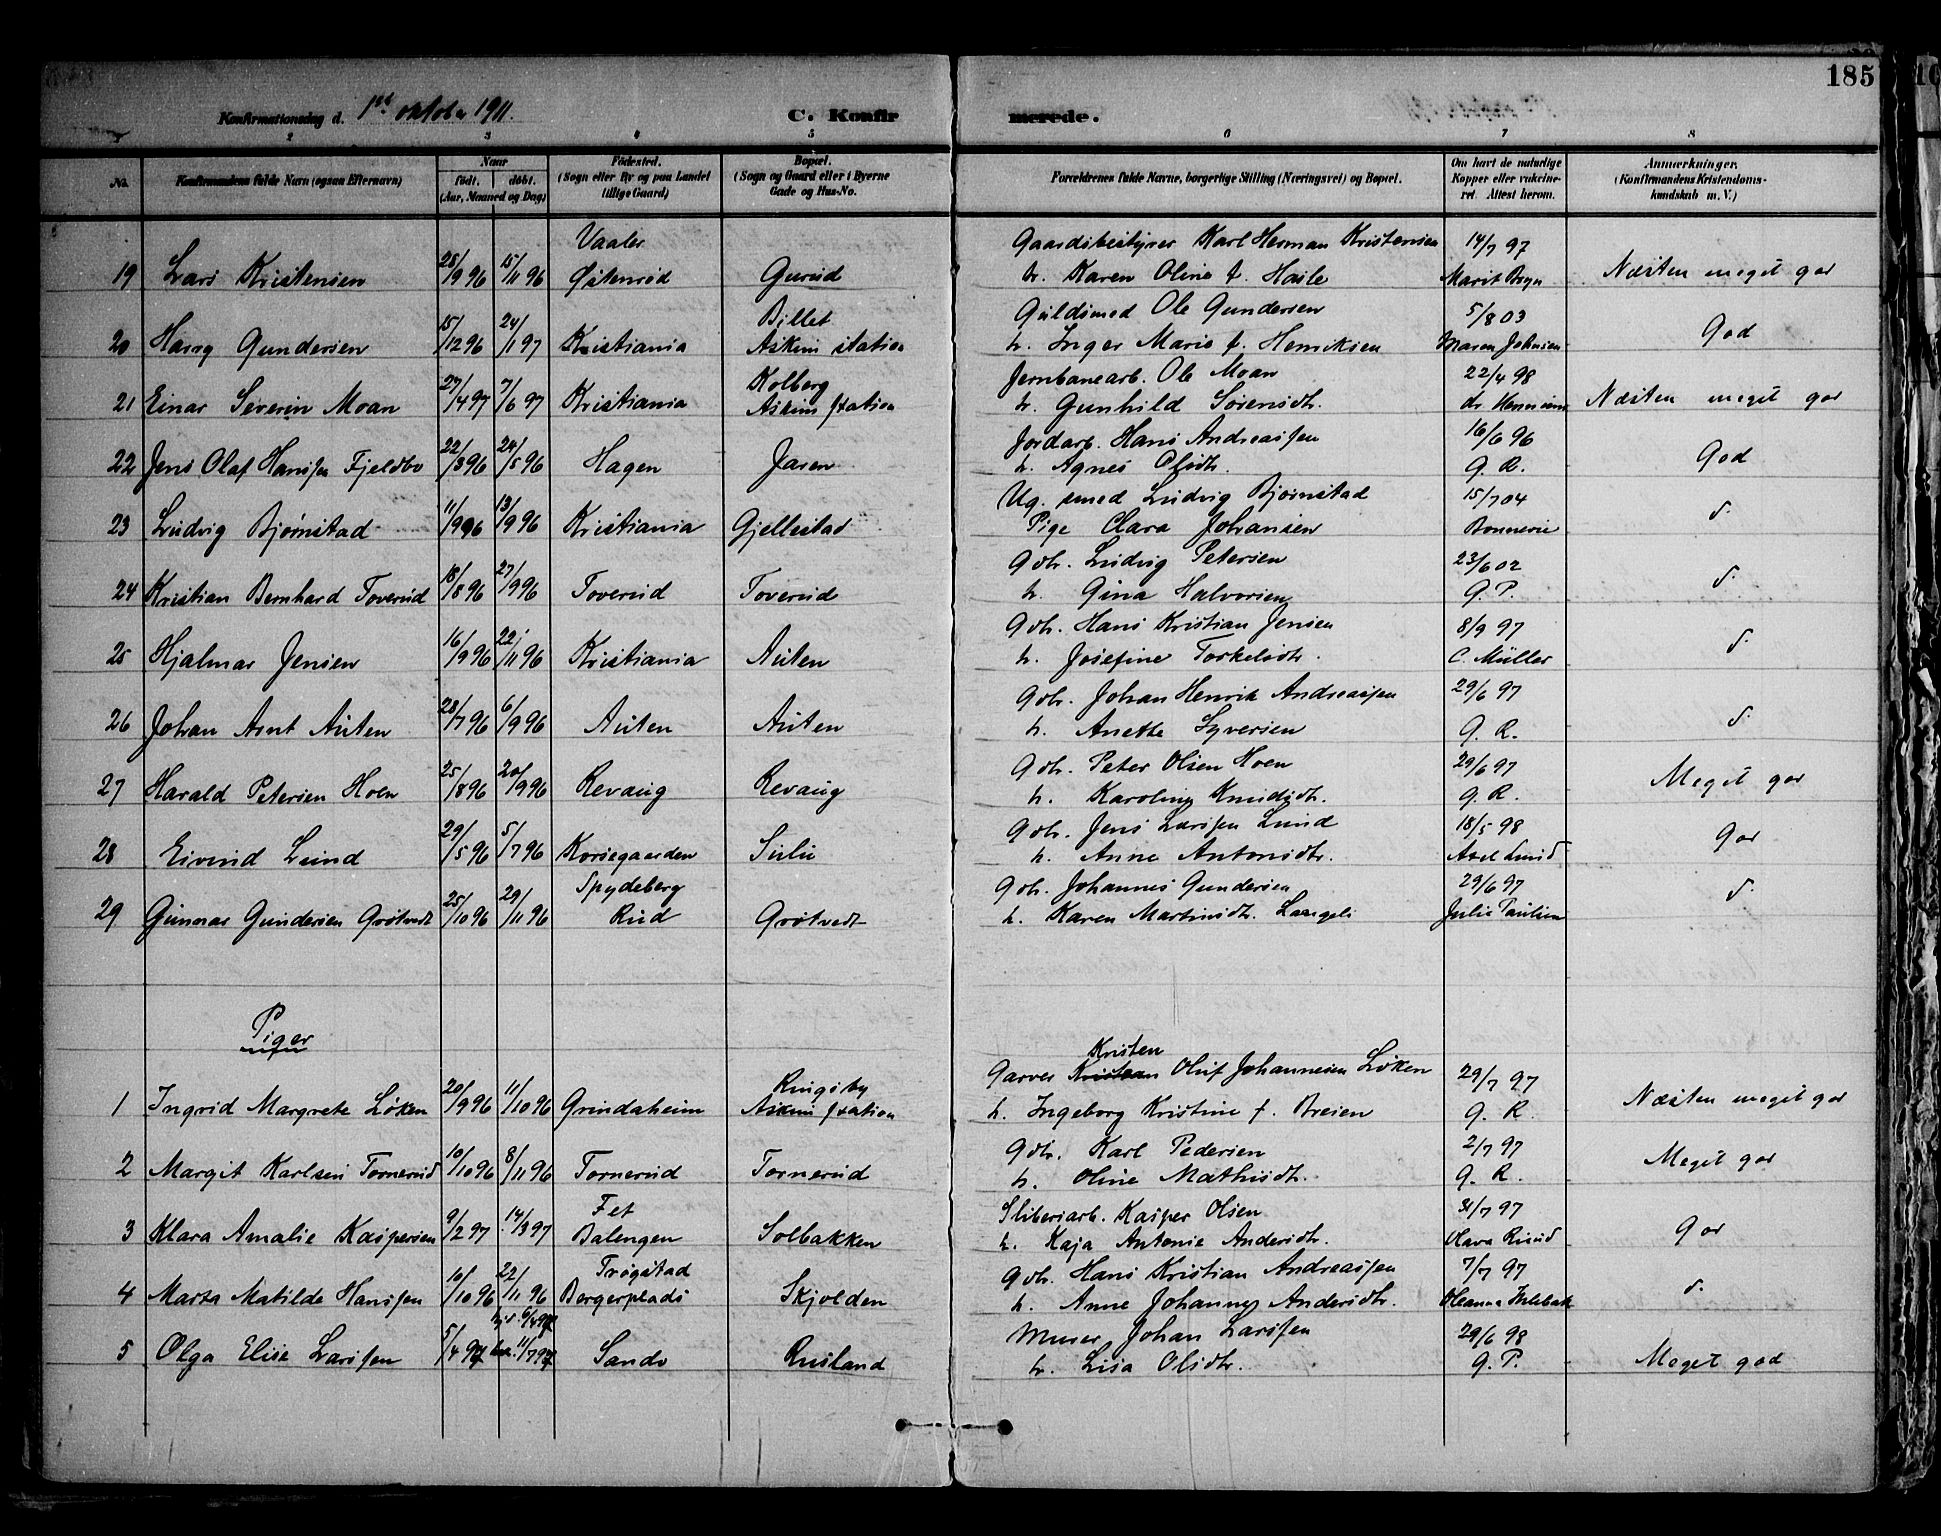 185
Konfirmationsdag d. 1ste oktober 1911.
C. Konfirmerede.
2 3 4 5 6 7 8
No.
Konfirmandens fulde Navn (ogsaa Efternavn)
Naar
født. døbt.
(Aar, Maaned og Dag)
Fødested.
(Sogn eller By og paa Landet
tillige Gaard)
Bopæl.
(Sogn og Gaard eller i Byerne
Gade og Hus-No.
Forældrenes fulde Navne, borgerlige Stilling (Næringsvei) og Bopæl.
Om havt de naturlige
Kopper eller vakcine-
ret. Attest herom.
Anmærkninger.
(Konfirmandens Kristendoms-
kundskab m. V.)
Vaaler Gaardsbestyrer Karl Herman Kristensen 14/7 97
19 Lars Kristensen 25/9 96 15/11 96 Østenrød Gurud h. Karen Oline f. Hasle Marit Bryn Næsten meget god
Billet Guldsmed Ole Gundersen 5/8 03
20 Harry Gundersen 15/12 96 24/1 97 Kristiania Askim station h. Inger Marie f. Henriksen Maren Johnsen God
Kolberg Jernbanearb. Ole Moan 22/4 98
21 Einar Severin Moan 27/4 97 7/6 97 Kristiania Askim station h. Gunhild Sørensdtr. dr. Næsten meget god
Jordarb. Hans Andreassen 16/6 96
22 Jens Olaf Hanssen Fjeldbo 22/3 96 24/5 96 Hagen Jaren h. Agnes Olsdtr. G. R. God
Ug. smed Ludvig Bjørnstad 15/7 04
23 Ludvig Bjørnstad 11/9 96 13/9 96 Kristiania Gjellestad Pige Clara Johansen Bonnevie d.
Gdb. Ludvig Petersen 23/6 02
24 Kristian Bernhard Toverud 18/8 96 27/9 96 Toverud Toverud h. Gina Halvorsen G. P. d.
Gdb. Hans Kristian Jensen 8/9 97
25 Hjalmar Jensen 16/9 96 22/11 96 Kristiania Auten h. Josefine Torkelsdtr. C. Müller d.
Gdb. Johan Henrik Andreassen 29/6 97
26 Johan Arnt Auten 28/7 96 6/9 96 Auten Auten h. Anette Syversen G. R. d.
Gdb. Peter Olsen Hoen 29/6 97
27 Harald Petersen Hoen 25/8 96 20/9 96 Revaug Revaug h. Karoline Knudsdtr. G. R. Meget god
Gdb. Jens Larssen Lund 18/5 98
28 Eivind Lund 29/5 96 5/7 96 Korsegaarden Sulu h. Anne Antonsdtr. Axel Lund God
Spydeberg Gdb. Johannes Gundersen 29/6 97
29 Gunnar Gundersen Grøtvedt 25/10 96 29/11 96 Rud Grøtvedt h. Karen Martinsdtr. Langeli Julie Paulsen d.
Piger
Kristen
Ringsby Garver Kristian Oluf Johannesen Løken 29/7 97
1 Ingrid Margrete Løken 20/9 96 11/10 96 Grindaheim Askim station h. Ingeborg Kristine f. Breien G. R. Næsten meget god
Gdb. Karl Pedersen 2/7 97
2 Margit Karlsen Tornerud 10/10 96 8/11 96 Tornerud Tornerud h. Oline Mathisdtr. G. R. Meget god
Fet Sliberiarb. Kasper Olsen 31/7 97
3 Klara Amalie Kaspersen 9/2 97 14/3 97 Balengen Solbakken h. Kaja Antonie Andersdtr. Olava Risud God
Trøgstad Gdb. Hans Kristian Andreassen 7/7 97
4 Marta Matilde Hanssen 10/10 96 22/11 96 Bergerplads Skjolden h. Anne Johannes Andersdtr. Oleanna d.
hjd. 6/4 97 Murer Johan Larssen 29/6 98
5 Olga Elise Larssen 5/4 97 11/7 97 Sando Rusland h. Lisa Olsdtr. G. P. Meget god